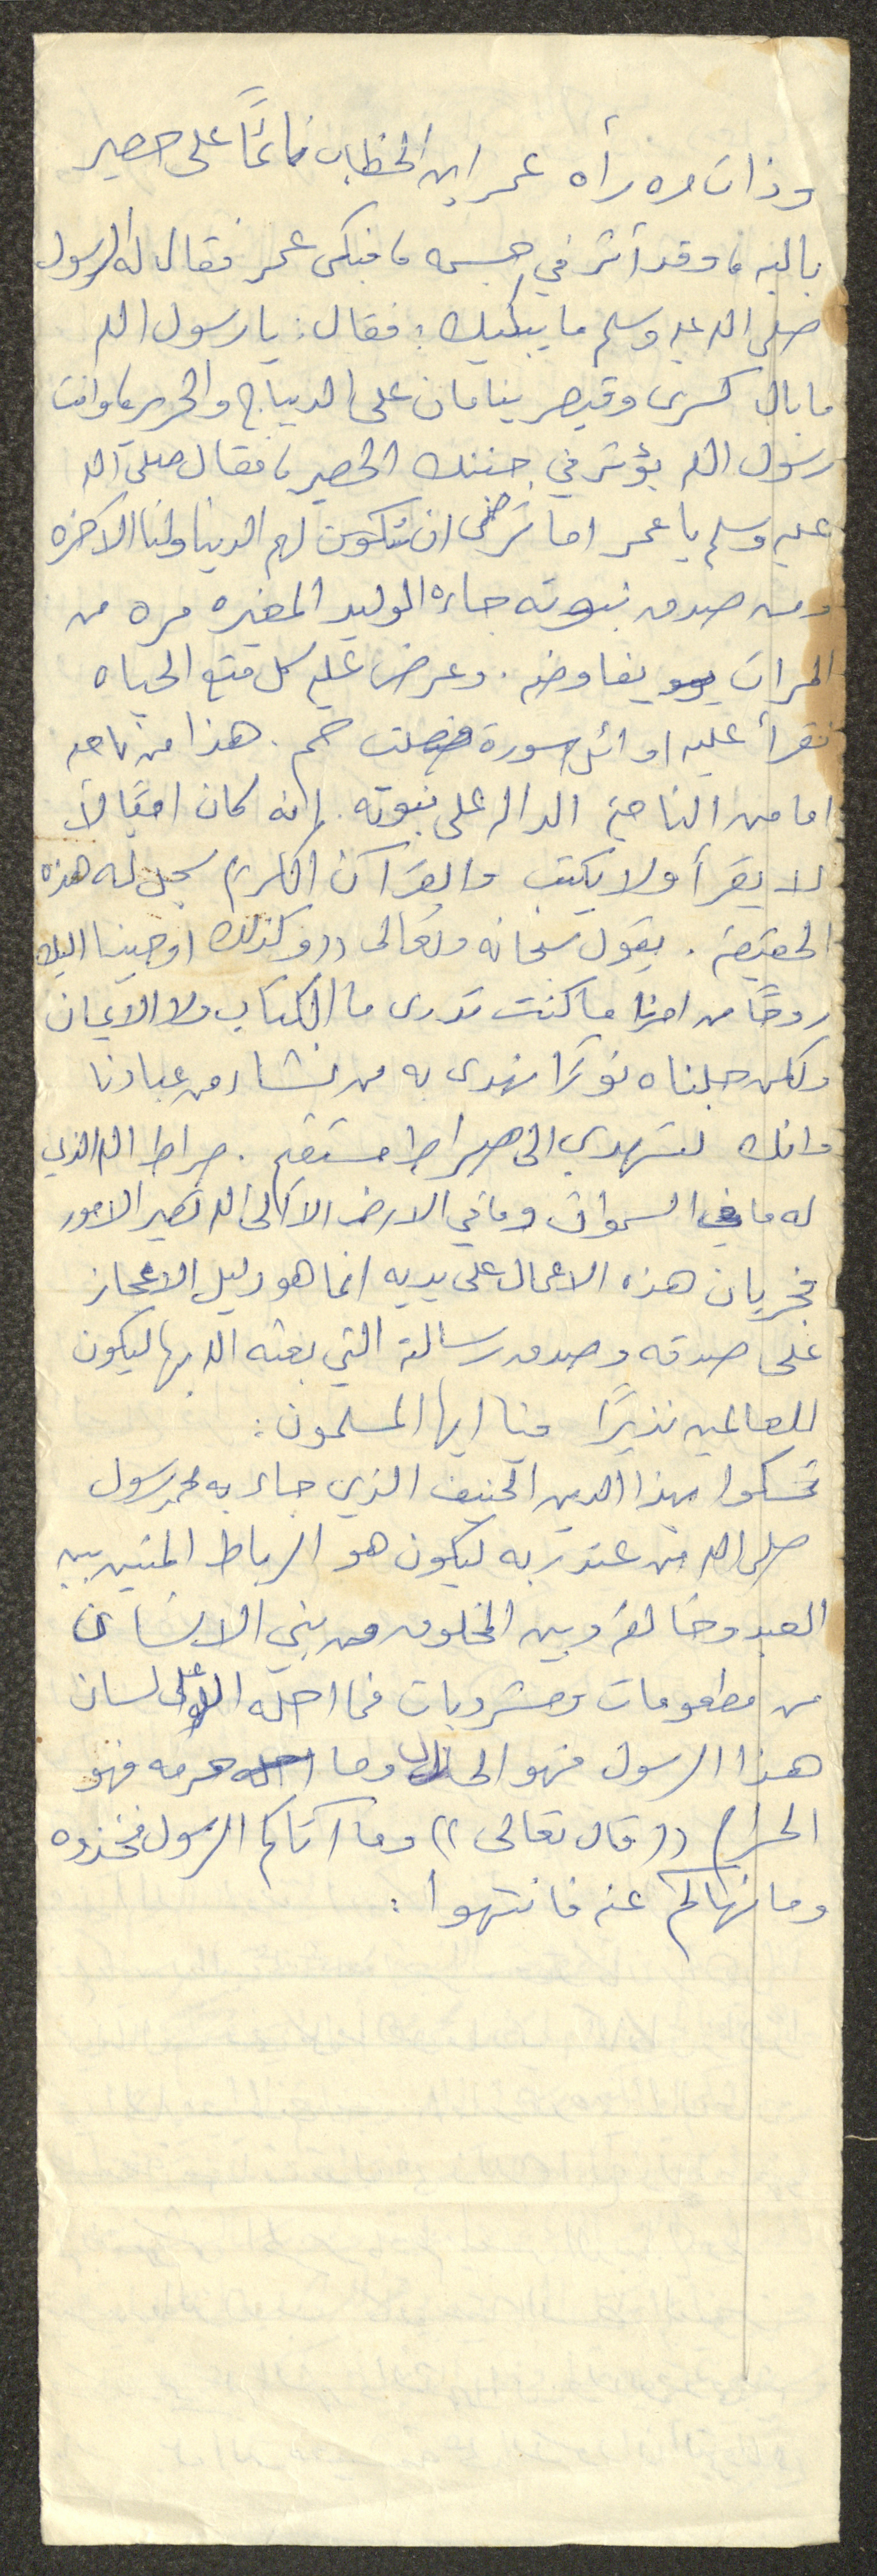 وذات مره رأه عمر ابن الخطاب نائمًا على حصير
باليه، وقد أثر في جسمه، فبكى عمر فقال له الرسول
صلى الله عليه وسلم ما يبكيك: فقال: يا رسول الله
ما بال كسرى وقيصر ينامان على الديباج والحرير، وانت
رسول الله يؤثر في جنبك الحصير، فقال صلى الله
عليه وسلم يا عمر اما ترضى ان تكون لهم الدنيا ولنا الاخره
ومن صدق نبوته جاءه الوليد المغيره مره من
المرات يفاوضه. وعرض عليه كل متع الحياه
فقرأ عليه اوائل سورة فصلت حم. هذا من ناحيه
اما من الناحية الداله على نبوته. انه كان اميًا لا
لا يقرأ ولا يكتب والقرآن الكريم سجل له هذه
الحقيقة. يقول سبحانه وتعالى ((وكذلك اوحينا اليك
روحًا من امرنا ما كنت تدرى ما الكتاب ولا الايمان
ولكن جعلناه نورًا نهدى به من نشاء من عبادنا
وانك لتهدي الى صراط مستقيم. صراط الله الذي
له ما في السموات وما في الارض الا الى الله تصير الامور
فجريان هذه الاعمال على يديه انما هو دليل الاعجاز
على صدقه وصدق رسالة التي بعثه الله بها ليكون
للعالمين نذيرًا فيا ايها المسلمون:
تمسكوا بهذا الدين الحنيف الذي جاء به محمد رسول
صلى الله من عند ربه ليكون هو الرباط المتين بين
العبد وخالقه وبين المخلوق من بني الانسان
من مطعومات ومشروبات فما احله الله على لسان
هذا الرسول فهو الحلال وما حرمه فهو
الحرام ((قال تعالى)) وما آتاكم الرسول فخذوه
وما نهاكم عنه فانتهوا: